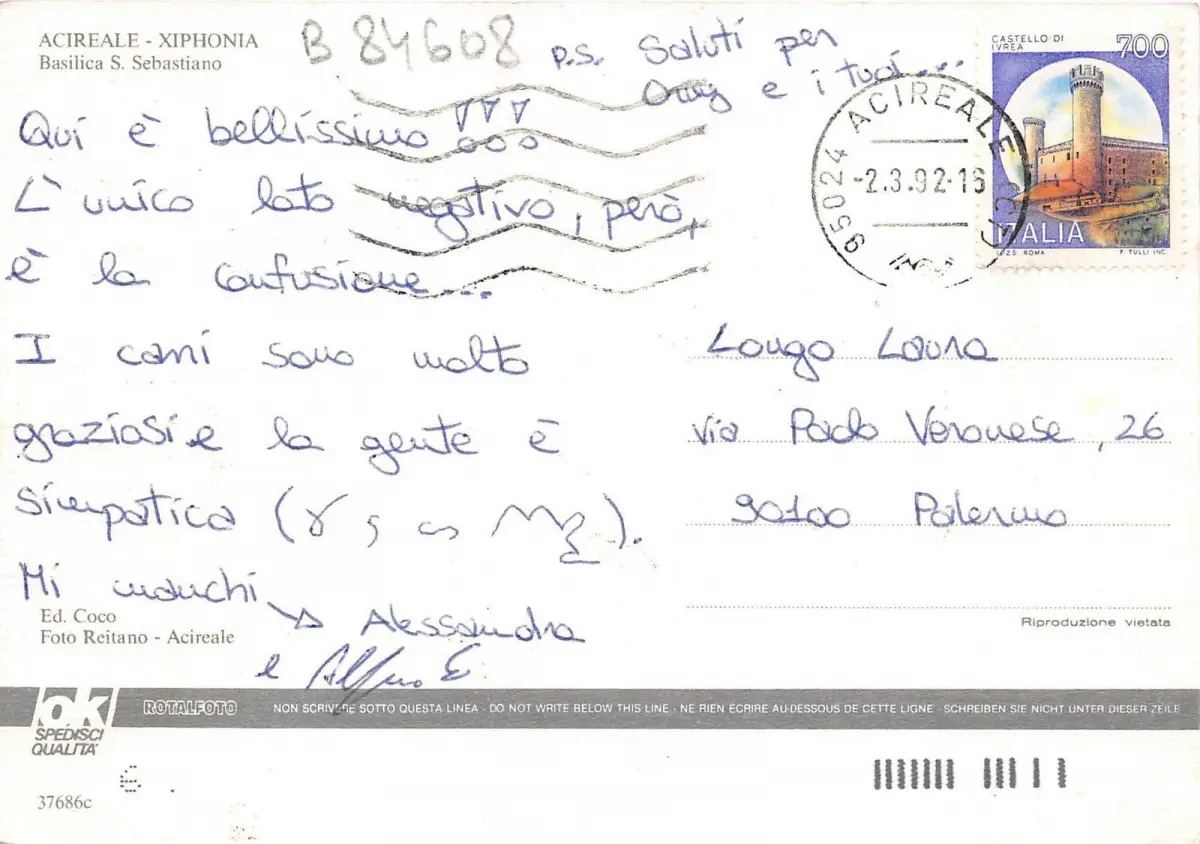 ACIREALE - XIPHONIA
Basilica S. Sebastiano
B 84608
p.s. Saluti per
e i tuoi...
Qui è bellissimo !!!
L'unico lato negativo, però,
è la confusione...
I carri sono molto
graziosi e la gente è
simpatica ( ).
Mi manchi
Alessandra
e
CASTELLO DI
IVREA
700
ITALIA
I.P.Z.S. ROMA F. TULLI INC.
95024 ACIREALE
-2.3.92-16
Longo Laura
via Paolo Veronese, 26
90100 Palermo
Riproduzione vietata
Ed. Coco
Foto Reitano - Acireale
ok
SPEDISCI
QUALITA'
ROTALFOTO
NON SCRIVERE SOTTO QUESTA LINEA - DO NOT WRITE BELOW THIS LINE - NE RIEN ECRIRE AU-DESSOUS DE CETTE LIGNE - SCHREIBEN SIE NICHT UNTER DIESER ZEILE
37686c